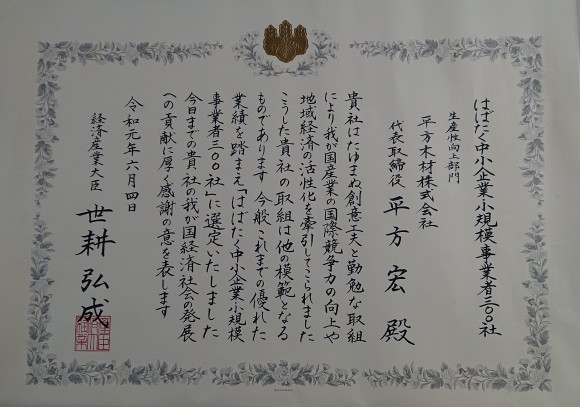 はばたく中小企業小規模事業者三〇〇社
生産性向上部門
平方木材株式会社
代表取締役 平方 宏 殿
貴社はたゆまぬ創意工夫と勤勉な取組
により我が国産業の国際競争力の向上や
地域経済の活性化を牽引してこられました
こうした貴社の取組は他の模範となる
ものであります 今般これまでの優れた
業績を踏まえ「はばたく中小企業小規模
事業者三〇〇社」に選定いたしました
今日までの貴社の我が国経済社会の発展
への貢献に厚く感謝の意を表します
令和元年六月四日
経済産業大臣 世耕弘成